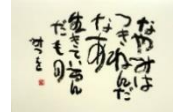 なやみは
つきねんだ
なあ
生きているん
だもの
みつを